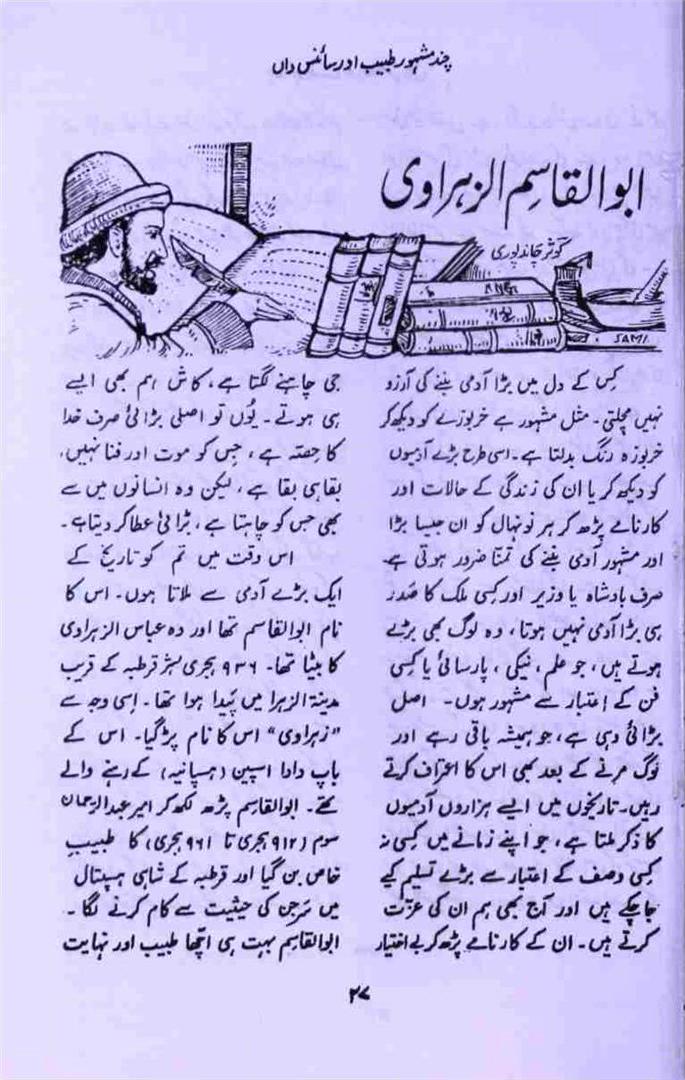 چند مشہور طبیب اور سائنس داں
ابوالقاسم الزہراوی
کوثر چاندپوری
SAMI
کس کے دل میں بڑا آدمی بننے کی آرزو
نہیں مچلتی۔ مثل مشہور ہے خربوزے کو دیکھ کر
خربوزہ رنگ بدلتا ہے۔ اسی طرح بڑے آدمیوں
کو دیکھ کر یا ان کی زندگی کے حالات اور
کارنامے پڑھ کر ہر نونہال کو ان جیسا بڑا
اور مشہور آدمی بننے کی تمنّا ضرور ہوتی ہے۔
صرف بادشاہ یا وزیر اور کسی ملک کا صَدر
ہی بڑا آدمی نہیں ہوتا، وہ لوگ بھی بڑے
ہوتے ہیں، جو علم، نیکی، پارسائی یا کسی
فن کے اعتبار سے مشہور ہوں۔ اصل
بڑائی وہی ہے، جو ہمیشہ باقی رہے اور
لوگ مرنے کے بعد بھی اس کا اعتراف کرتے
رہیں۔ تاریخوں میں ایسے ہزاروں آدمیوں
کا ذکر ملتا ہے، جو اپنے زمانے میں کسی نہ
کسی وصف کے اعتبار سے بڑے تسلیم کیے
جاچکے ہیں اور آج بھی ہم ان کی عزّت
کرتے ہیں۔ ان کے کارنامے پڑھ کر بے اختیار
جی چاہنے لگتا ہے، کاش ہم بھی ایسے
ہی ہوتے۔ یُوں تو اصلی بڑائی صرف خدا
کا حِصّہ ہے، جِس کو موت اور فنا نہیں،
بقا ہی بقا ہے، لیکن وہ انسانوں میں سے
بھی جس کو چاہتا ہے، بڑائی عطا کر دیتا ہے۔
اس وقت میں تم کو تاریخ کے
ایک بڑے آدمی سے ملاتا ہوں۔ اس کا
نام ابوالقاسم تھا اور وہ عباس الزہراوی
کا بیٹا تھا۔ ۹۳۶ ہجری شہر قرطبہ کے قریب
مدینۃ الزہرا میں پَیدا ہوا تھا۔ اِسی وجہ سے
”زہراوی“ اس کا نام پڑ گیا۔ اس کے
باپ دادا اسپین (ہسپانیہ) کے رہنے والے
تھے۔ ابوالقاسم پڑھ لکھ کر امیر عبدالرحمان
سوم (۹۱۲ ہجری تا ۹۶۱ ہجری) کا طبیبِ
خاص بن گیا اور قرطبہ کے شاہی ہسپتال
میں سَرجن کی حیثیت سے کام کرنے لگا۔
ابوالقاسم بہت ہی اچّھا طبیب اور نہایت
۲۷